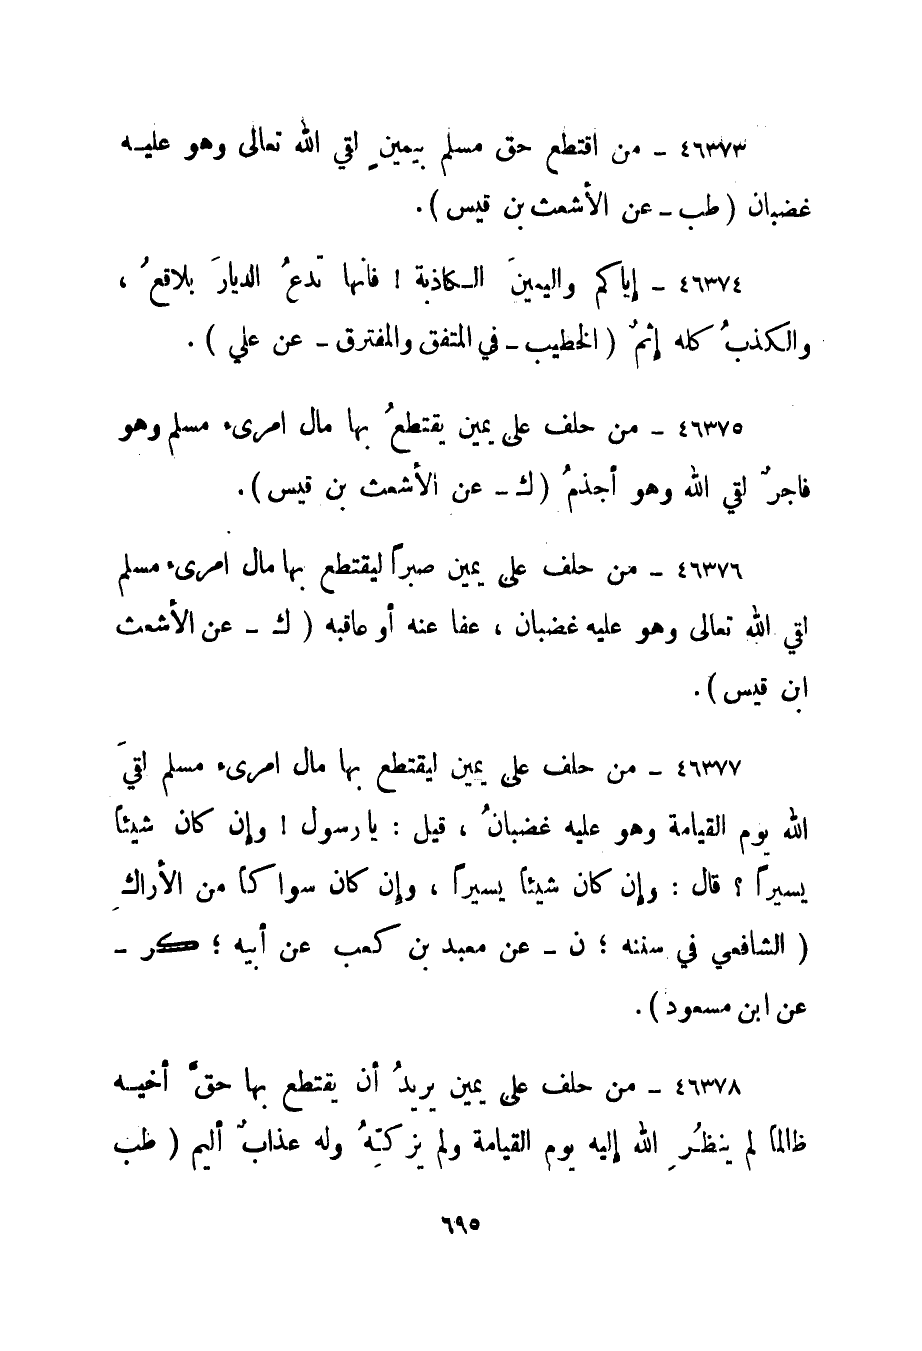 ٤٦٣٧٣ – من اقتطع حق مسلم بيمينٍ لقي الله تعالى وهو عليـه
غضبان (طب – عن الأشعث بن قيس).
٤٦٣٧٤ – إياكم واليمينَ الكاذبة ! فانها تدعُ الديارَ بلاقعُ ،
والكذبُ كله إثمٌ (الخطيب – في المتفق والمفترق – عن علي ).
٤٦٣٧٥ – من حلف على يمين يقتطعُ بها مال امرىء مسلم وهو
فاجرٌ لقي الله وهو أجذمُ (ك – عن الأشعث بن قيس).
٤٦٣٧٦ – من حلف على يمين صبراً ليقتطع بها مال امرىء مسلم
لقي الله تعالى وهو عليه غضبان ، عفا عنه أو عاقبه ( ك – عن الأشعث
ابن قيس).
٤٦٣٧٧ – من حلف على يمين ليقتطع بها مال امرىء مسلم لقيَ
الله يوم القيامة وهو عليه غضبانُ ، قيل : يا رسول ! وإن كان شيئاً
يسيراً ؟ قال : وإن كان شيئاً يسيراً ، وإن كان سواكاً من الأراكِ
( الشافعي في سننه ؛ ن – عن معبد بن كعب عن أبيه ؛ كر –
عن ابن مسعود).
٤٦٣٧٨ – من حلف على يمين يريدُ أن يقتطع بها حقَّ أخيـه
ظالماً لم ينظُرِ الله إليه يوم القيامة ولم يزكِّهُ وله عذابٌ أليم ( طب
٦٩٥